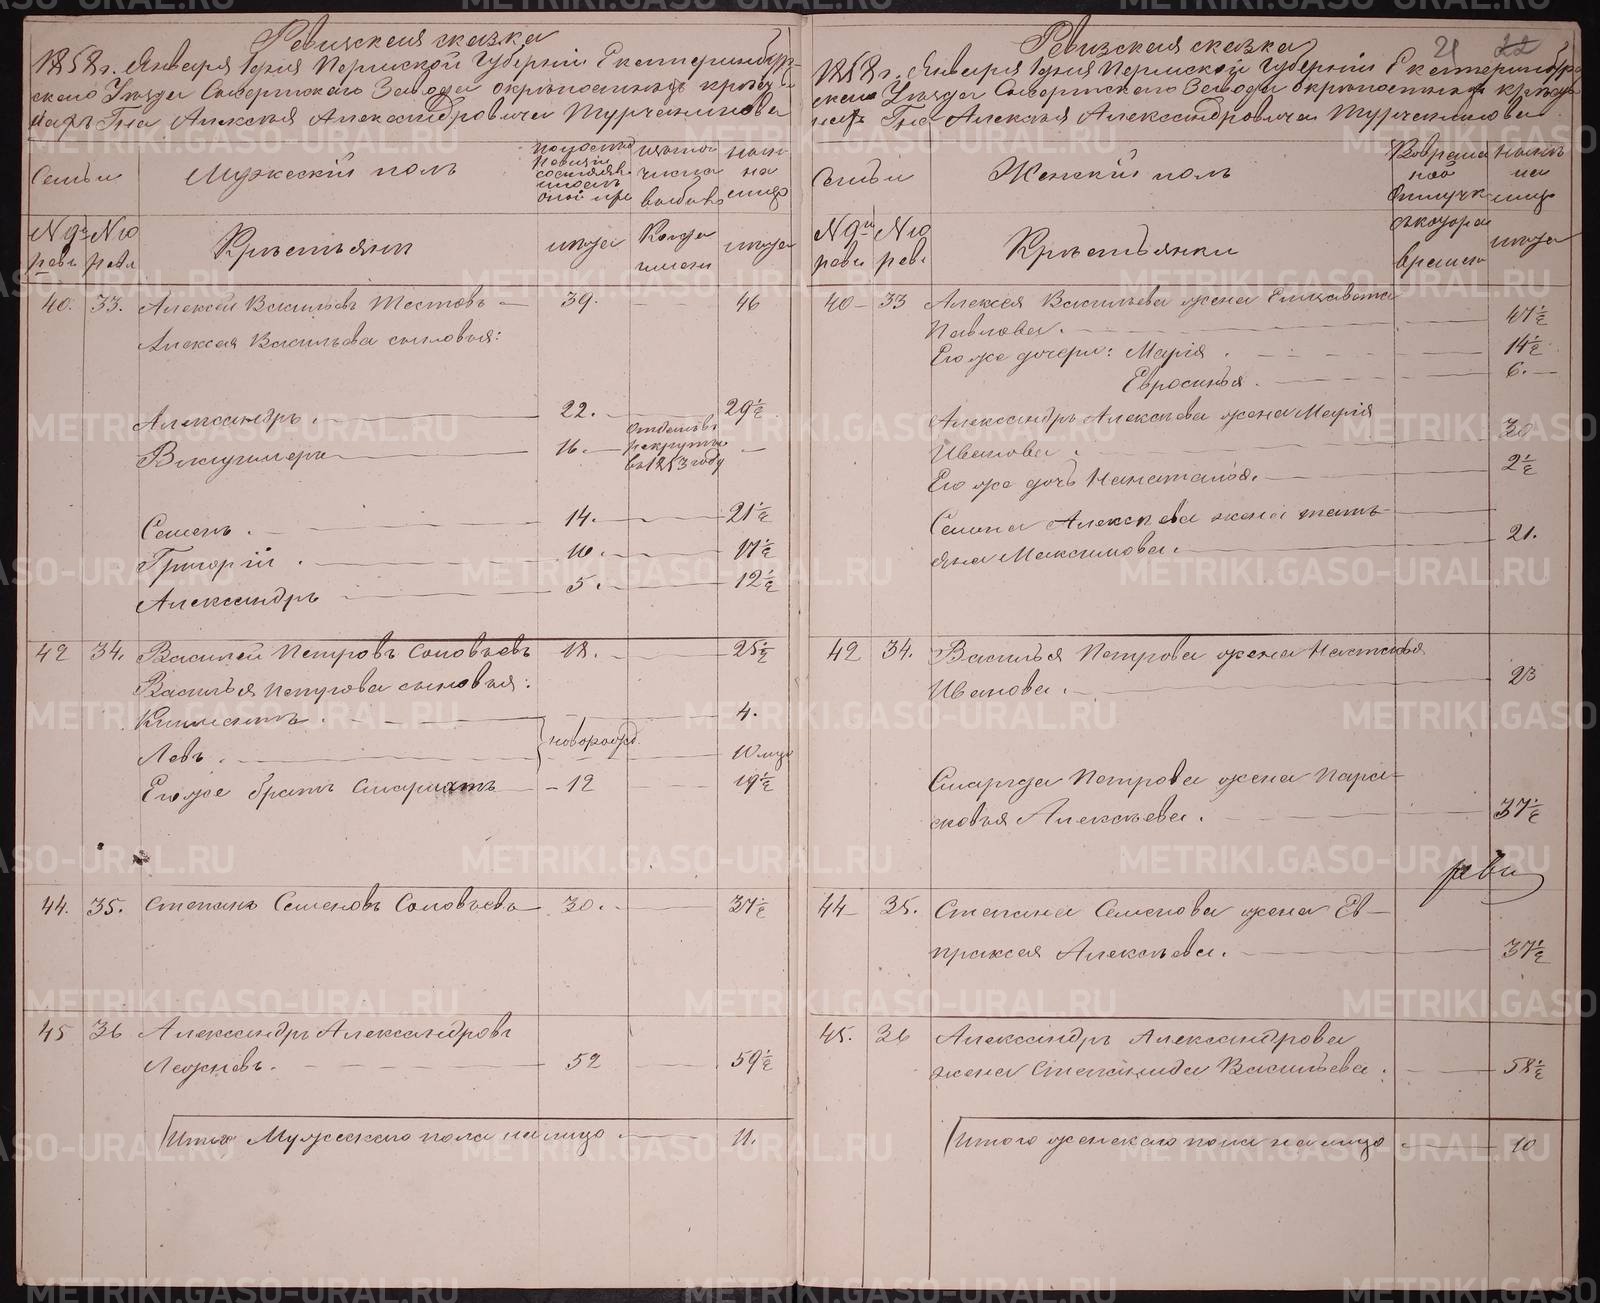 Ревизская сказка
1858 г. Января дня Пермской Губернии Екатеринбург-
скаго Уезда Сысертскаго Завода о крепостных крестья-
нахъ Гна Алексея Александровича Турчанинова
Семьи
Мужеский полъ
№ 9й реви
№ 10 реви
Крестьяне
40. 33. Алексей Васильевъ Шестовъ — 39. — 46
Алексея Васильева сыновья:
Александръ. — 22. — 29½
Владимеръ — 16. — отданъ въ рекруты въ 1853 году —
Семенъ. — 14. — 21½
Григорий. — 10. — 17½
Александръ — 5. — 12½
42 34. Василей Петровъ Соловьевъ 18. — 25½
Василья Петрова сыновья:
Климантъ. — новорожд. — 4.
Левъ. — 10 мцо
Его же братъ — 12 — 19½
44. 35. Степанъ Семеновъ Соловьевъ 30. — 37½
45 36 Александръ Александровъ
Лежневъ. — 52 — 59½
Итого Мужескаго пола на лицо — 11.
21 22
Ревизская сказка
1858 г. Января дня Пермской Губернии Екатеринбург
скаго Уезда Сысертскаго Завода о крепостных крестья
нахъ Гна Алексея Александровича Турчанинова
Семьи
Женский полъ
№ 9й реви
№ 10 реви
Крестьянки
40 — 33 Алексея Васильева жена Елизавета
Павлова. — 47½
Его же дочери: Мария. — 14½
Евросинья. — 6. —
Александръ Алексеева жена Мария
Иванова. — 30
Его же дочь Наталья. — 2½
Семена Алексеева жена Тать-
яна Максимова. — 21.
42 34. Василья Петрова жена Настасья
Иванова. — 23
Петрова жена Пара-
сковья Алексеева. — 37½
реви
44 — 35. Степана Семенова жена Ев-
праксея Алексеева. — 37½
45. 36 Александръ Александрова
жена Степанида Васильева. — 58½
Итого женскаго пола на лицо — 10
METRIKI.GASO-URAL.RU